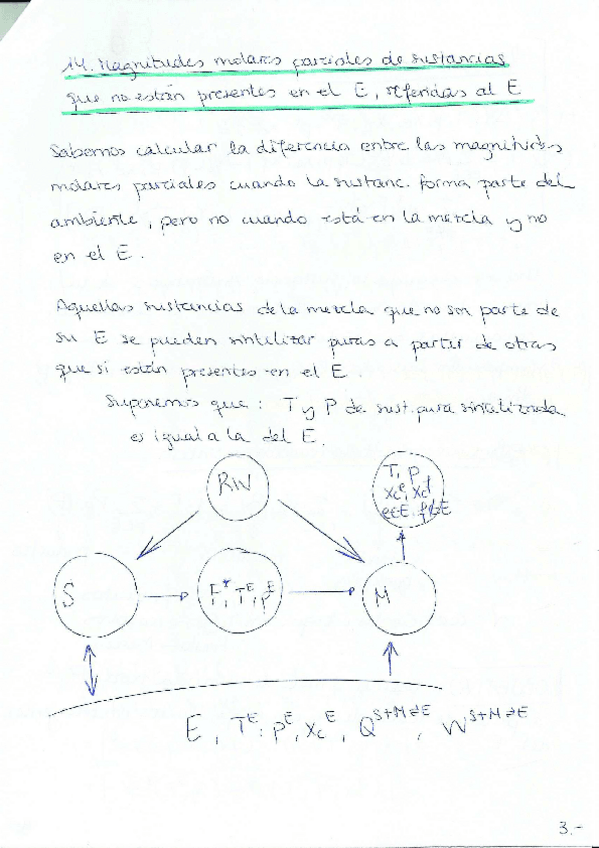 14. Magnitudes molares parciales de sustancias
que no están presentes en el E, referidas al E
Sabemos calcular la diferencia entre las magnitudes
molares parciales cuando la sustanc. forma parte del
ambiente, pero no cuando está en la mezcla y no
en el E.
Aquellas sustancias de la mezcla que no son parte de
su E se pueden sintetizar puras a partir de otras
que si están presentes en el E.
Suponemos que: T y P de sust. pura sintetizada
es igual a la del E.
RIV
T, P
S
F*, Tᴱ, Pᴱ
M
E, Tᴱ, Pᴱ, Xcᴱ, Q^S+M⇌E, W^S+M⇌E
3.-